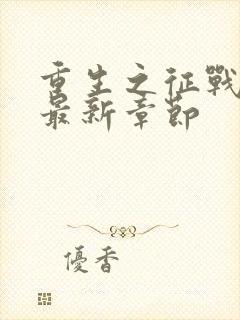 重生之征戰
最新章節
優香